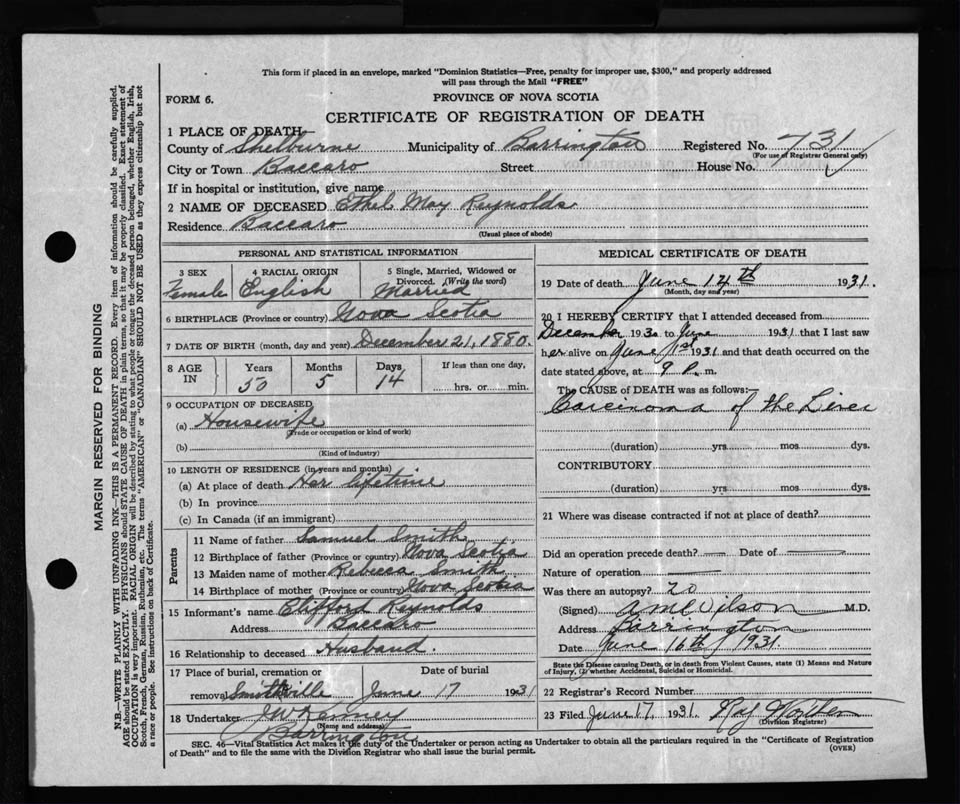 This form if placed in an envelope, marked "Dominion Statistics—Free, penalty for improper use, $300," and properly addressed
will pass through the Mail "FREE"
FORM 6.
PROVINCE OF NOVA SCOTIA
CERTIFICATE OF REGISTRATION OF DEATH
1 PLACE OF DEATH—
County of Shelburne Municipality of Barrington Registered No. 731
(For use of Registrar General only)
City or Town Baccaro Street House No.
If in hospital or institution, give name
2 NAME OF DECEASED Ethel May Reynolds
Residence Baccaro
(Usual place of abode)
PERSONAL AND STATISTICAL INFORMATION
3 SEX Female
4 RACIAL ORIGIN English
5 Single, Married, Widowed or
Divorced. (Write the word)
Married
6 BIRTHPLACE (Province or country) Nova Scotia
7 DATE OF BIRTH (month, day and year) December 21, 1880.
8 AGE IN
Years Months Days If less than one day,
50 5 14 hrs. or min.
9 OCCUPATION OF DECEASED
(a) Housewife
(Trade or occupation or kind of work)
(b)
(Kind of industry)
10 LENGTH OF RESIDENCE (in years and months)
(a) At place of death Her lifetime
(b) In province
(c) In Canada (if an immigrant)
Parents
11 Name of father Samuel Smith
12 Birthplace of father (Province or country) Nova Scotia
13 Maiden name of mother Rebecca Smith
14 Birthplace of mother (Province or country) Nova Scotia
15 Informant's name Clifford Reynolds
Address Baccaro
16 Relationship to deceased Husband.
17 Place of burial, cremation or Date of burial
removal Smithville June 17 1931
18 Undertaker J W Kenney
(Name and address)
Barrington
MEDICAL CERTIFICATE OF DEATH
19 Date of death June 14th 1931.
(Month, day and year)
20 I HEREBY CERTIFY that I attended deceased from
December 1930 to June 1931 that I last saw
her alive on June 1st 1931 and that death occurred on the
date stated above, at 9 P. m.
The CAUSE OF DEATH was as follows:—
Carcinoma of the Liver
(duration) yrs. mos. dys.
CONTRIBUTORY
(duration) yrs mos dys.
21 Where was disease contracted if not at place of death?
Did an operation precede death? — Date of —
Nature of operation —
Was there an autopsy? no
(Signed) Wilson M.D.
Address Barrington
Date June 16th 1931.
State the Disease causing Death, or in death from Violent Causes, state (1) Means and Nature
of Injury, (2) whether Accidental, Suicidal or Homicidal.
22 Registrar's Record Number
23 Filed June 17, 1931. Ray
(Division Registrar)
SEC. 46—Vital Statistics Act makes it the duty of the Undertaker or person acting as Undertaker to obtain all the particulars required in the "Certificate of Registration
of Death" and to file the same with the Division Registrar who shall issue the burial permit.
(OVER)
MARGIN RESERVED FOR BINDING
N.B.—WRITE PLAINLY WITH UNFADING INK—THIS IS A PERMANENT RECORD. Every item of information should be carefully supplied.
AGE should be stated EXACTLY. PHYSICIANS should STATE CAUSE OF DEATH in plain terms, so that it may be properly classified. Exact statement of
OCCUPATION is very important. RACIAL ORIGIN will be described by stating to what people or tongue the deceased person belonged, whether English, Irish,
Scotch, French, German, Russian, Ruthenian, etc. The terms "AMERICAN" or "CANADIAN" SHOULD NOT BE USED as they express citizenship but not
a race or people. See instructions on back of Certificate.